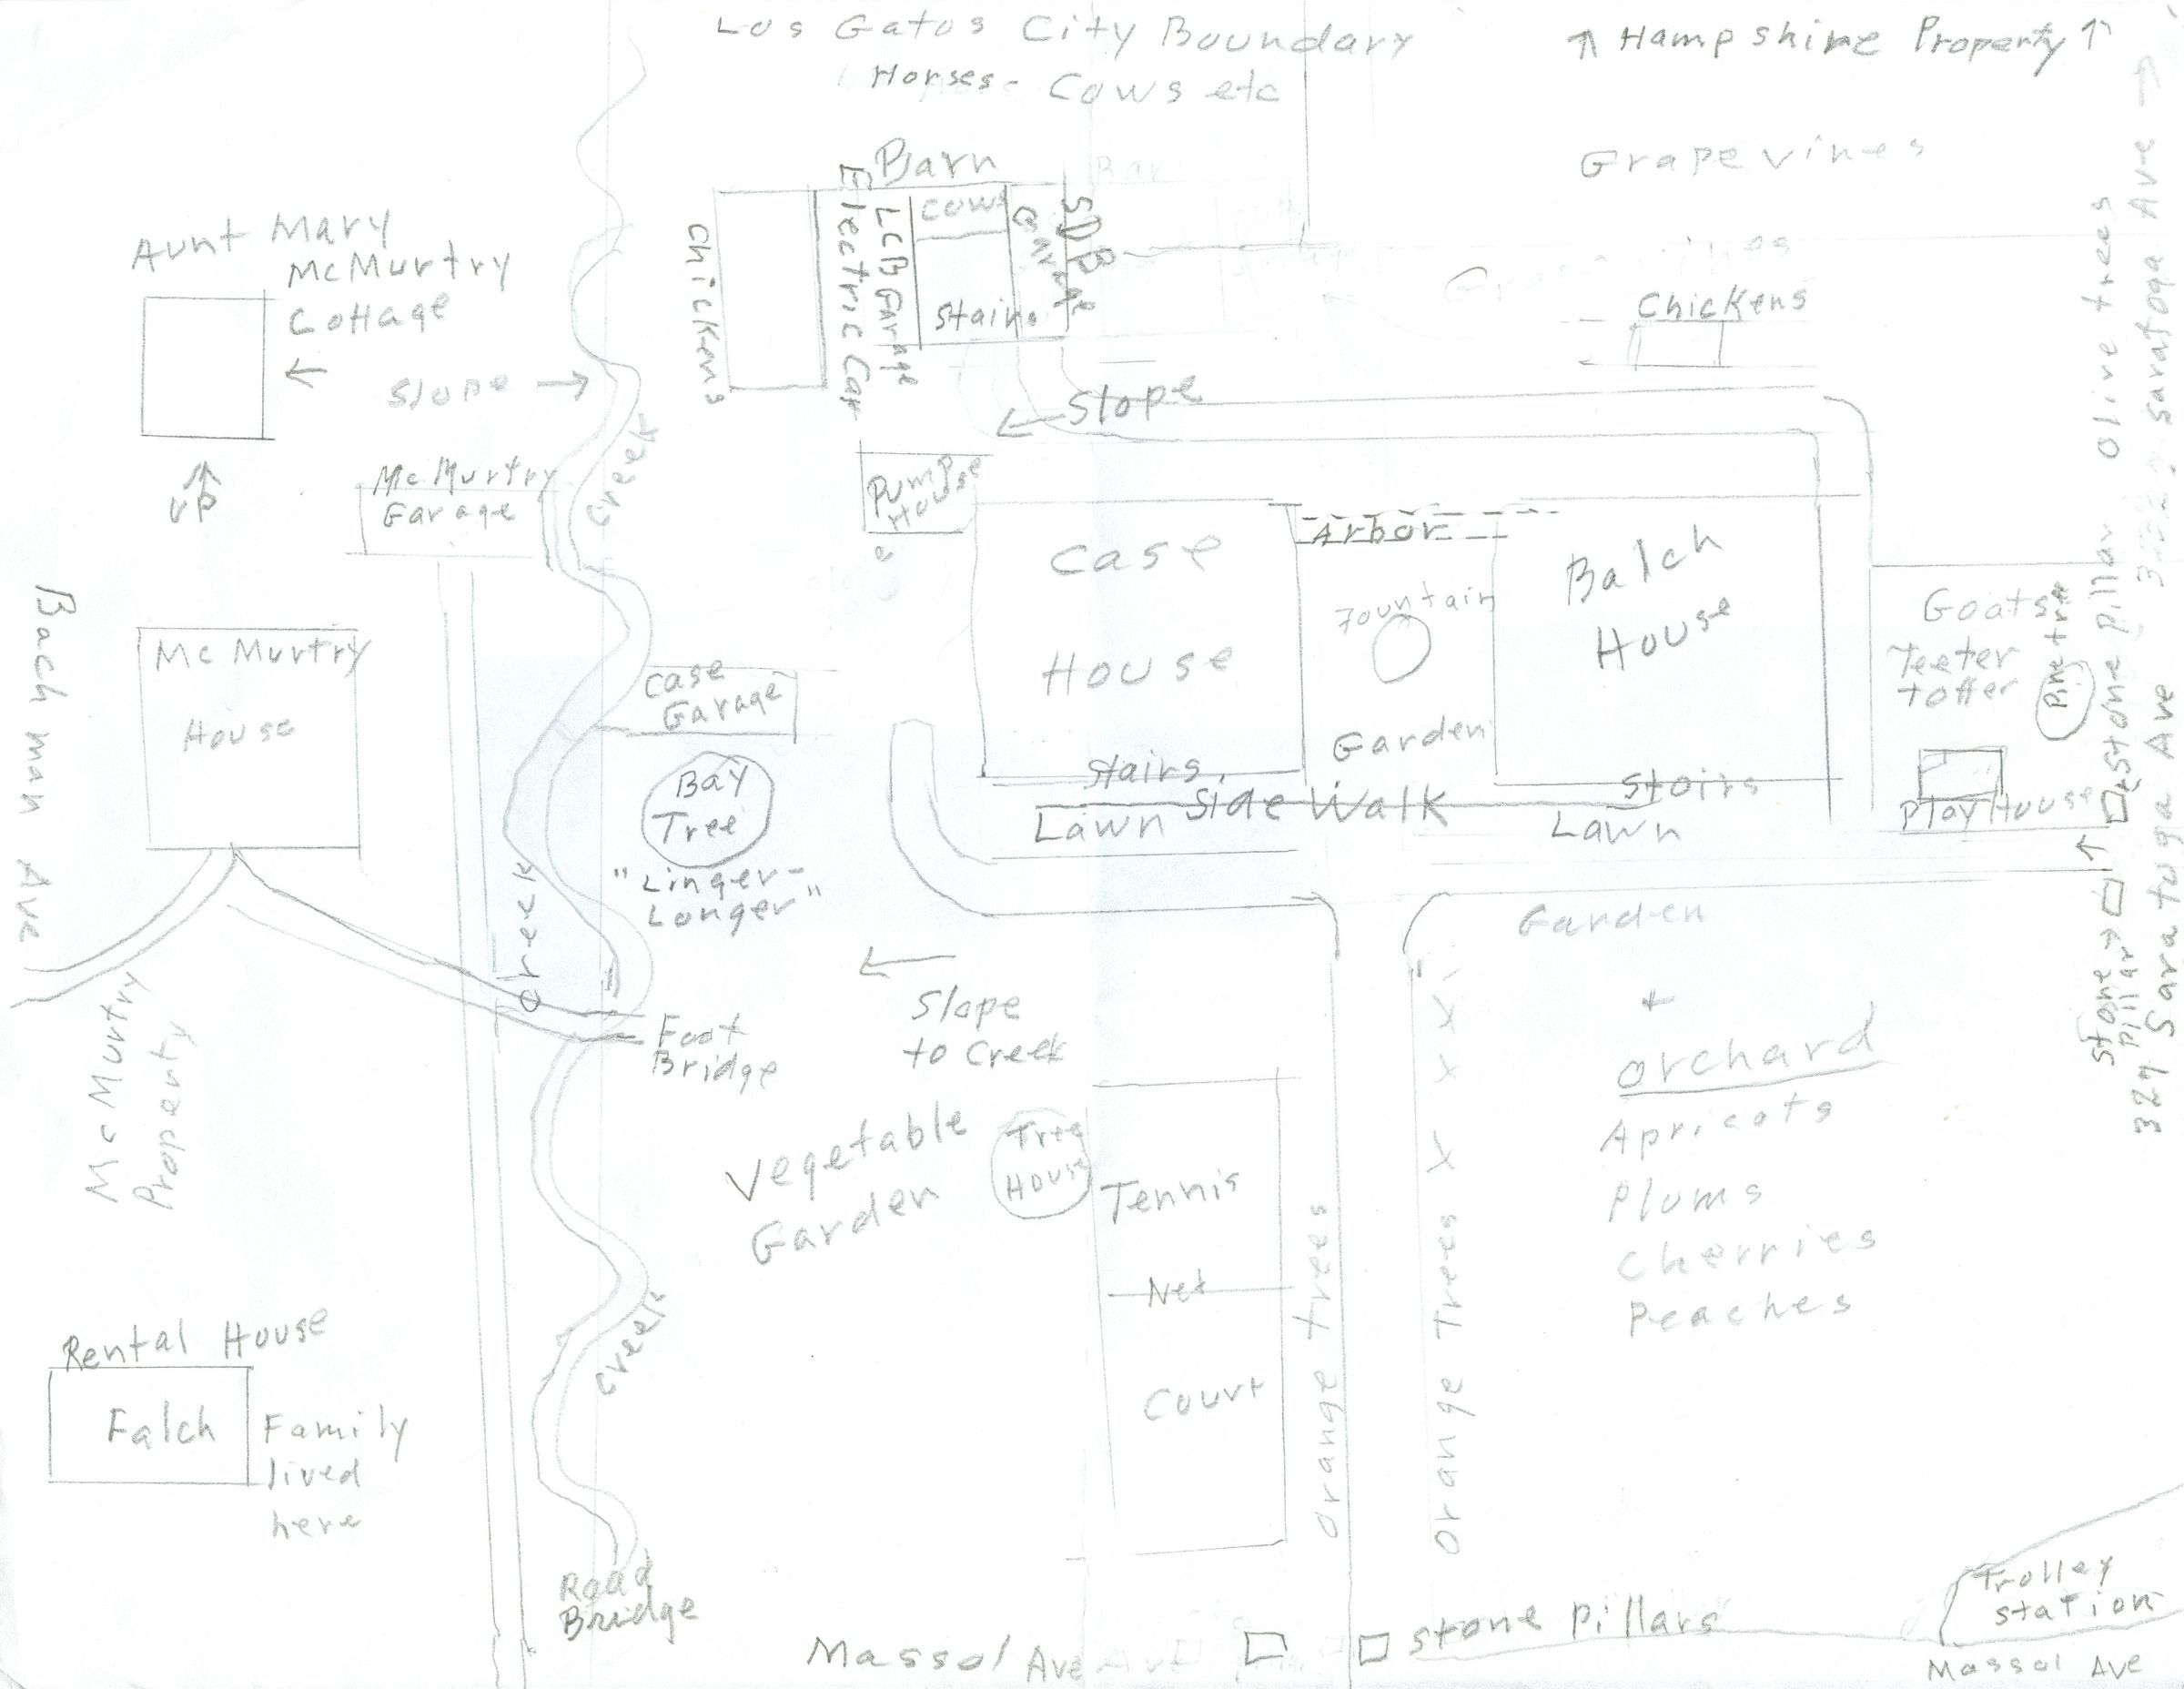 Los Gatos City Boundary
Horses - Cows etc
↑ Hampshire Property ↑
Grapevines
Barn
Bar
Aunt Mary
McMurtry
Cottage
←
Chickens
Electric Car
LCB Garage
Cows
Stairs
SDB
Garage
Chickens
Olive trees
Saratoga Ave →
Slope →
← Slope
Creek
↑
UP
McMurtry
Garage
Pump
House
Case
House
Arbor
Fountain
Garden
Balch
House
Goats
Teeter
totter
Pine tree
Play House
Stone pillar
Bachman Ave
McMurtry
House
Case
Garage
Bay
Tree
"Linger-
Longer"
Stairs
Side Walk
Stairs
Lawn
Lawn
Creek
Garden
+
Orchard
Apricots
Plums
Cherries
Peaches
Stone →
pillar
327 Saratoga Ave
←
Slope
to Creek
Foot
Bridge
McMurtry
Property
Vegetable
Garden
Tree
House
Tennis
Net
Court
Orange trees
Orange Trees X X X X
Creek
Rental House
Falch
Family
lived
here
Road
Bridge
Massol Ave
Stone Pillars
Trolley
Station
Massol Ave